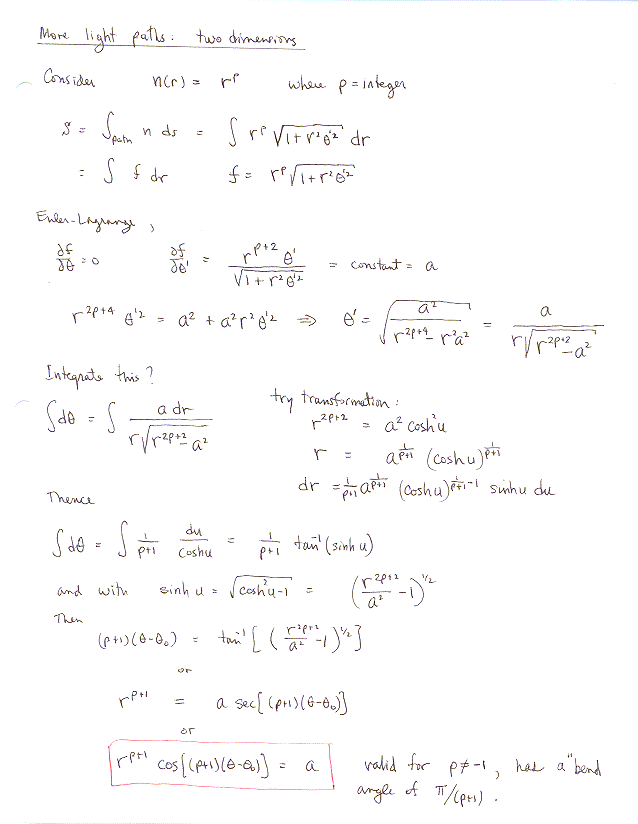 More light paths: two dimensions
Consider n(r) = r^p where p = integer
S = ∫_path n ds = ∫ r^p √(1+r²θ'²) dr
= ∫ f dr f = r^p √(1+r²θ'²)
Euler-Lagrange,
∂f/∂θ = 0 ∂f/∂θ' = r^(p+2) θ' / √(1+r²θ'²) = constant = a
r^(2p+4) θ'² = a² + a²r²θ'² ⇒ θ' = √(a² / (r^(2p+4) - r²a²)) = a / (r√(r^(2p+2) - a²))
Integrate this?
∫dθ = ∫ a dr / (r√(r^(2p+2) - a²))
try transformation:
r^(2p+2) = a² cosh²u
r = a^(1/(p+1)) (cosh u)^(1/(p+1))
dr = 1/(p+1) a^(1/(p+1)) (cosh u)^(1/(p+1) - 1) sinh u du
Thence
∫dθ = ∫ 1/(p+1) du/cosh u = 1/(p+1) tan⁻¹(sinh u)
and with sinh u = √(cosh²u-1) = (r^(2p+2)/a² - 1)^(1/2)
Then
(p+1)(θ-θ₀) = tan⁻¹[(r^(2p+2)/a² - 1)^(1/2)]
or
r^(p+1) = a sec[(p+1)(θ-θ₀)]
or
r^(p+1) cos[(p+1)(θ-θ₀)] = a
valid for p≠-1, has a "bend
angle of π/(p+1).